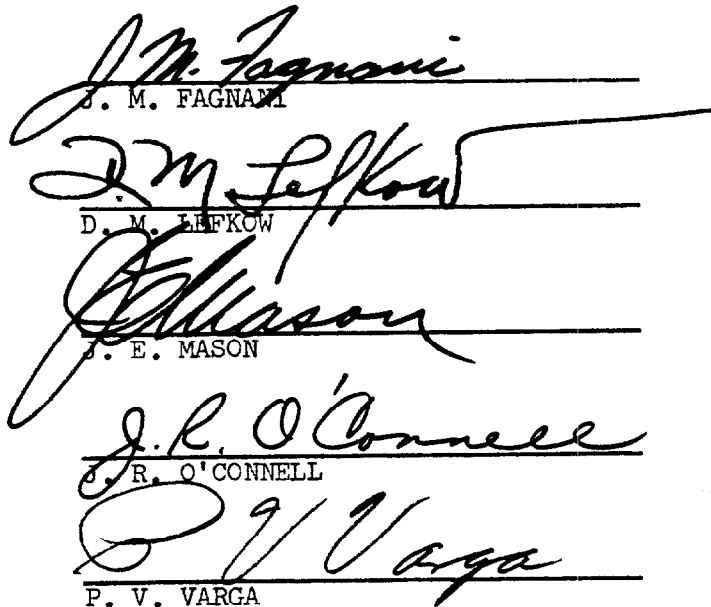 J. M. Fagnani
J. M. FAGNANI
D. M. Lefkow
D. M. LEFKOW
J. E. Mason
J. E. MASON
J. R. O'Connell
J. R. O'CONNELL
P V Varga
P. V. VARGA